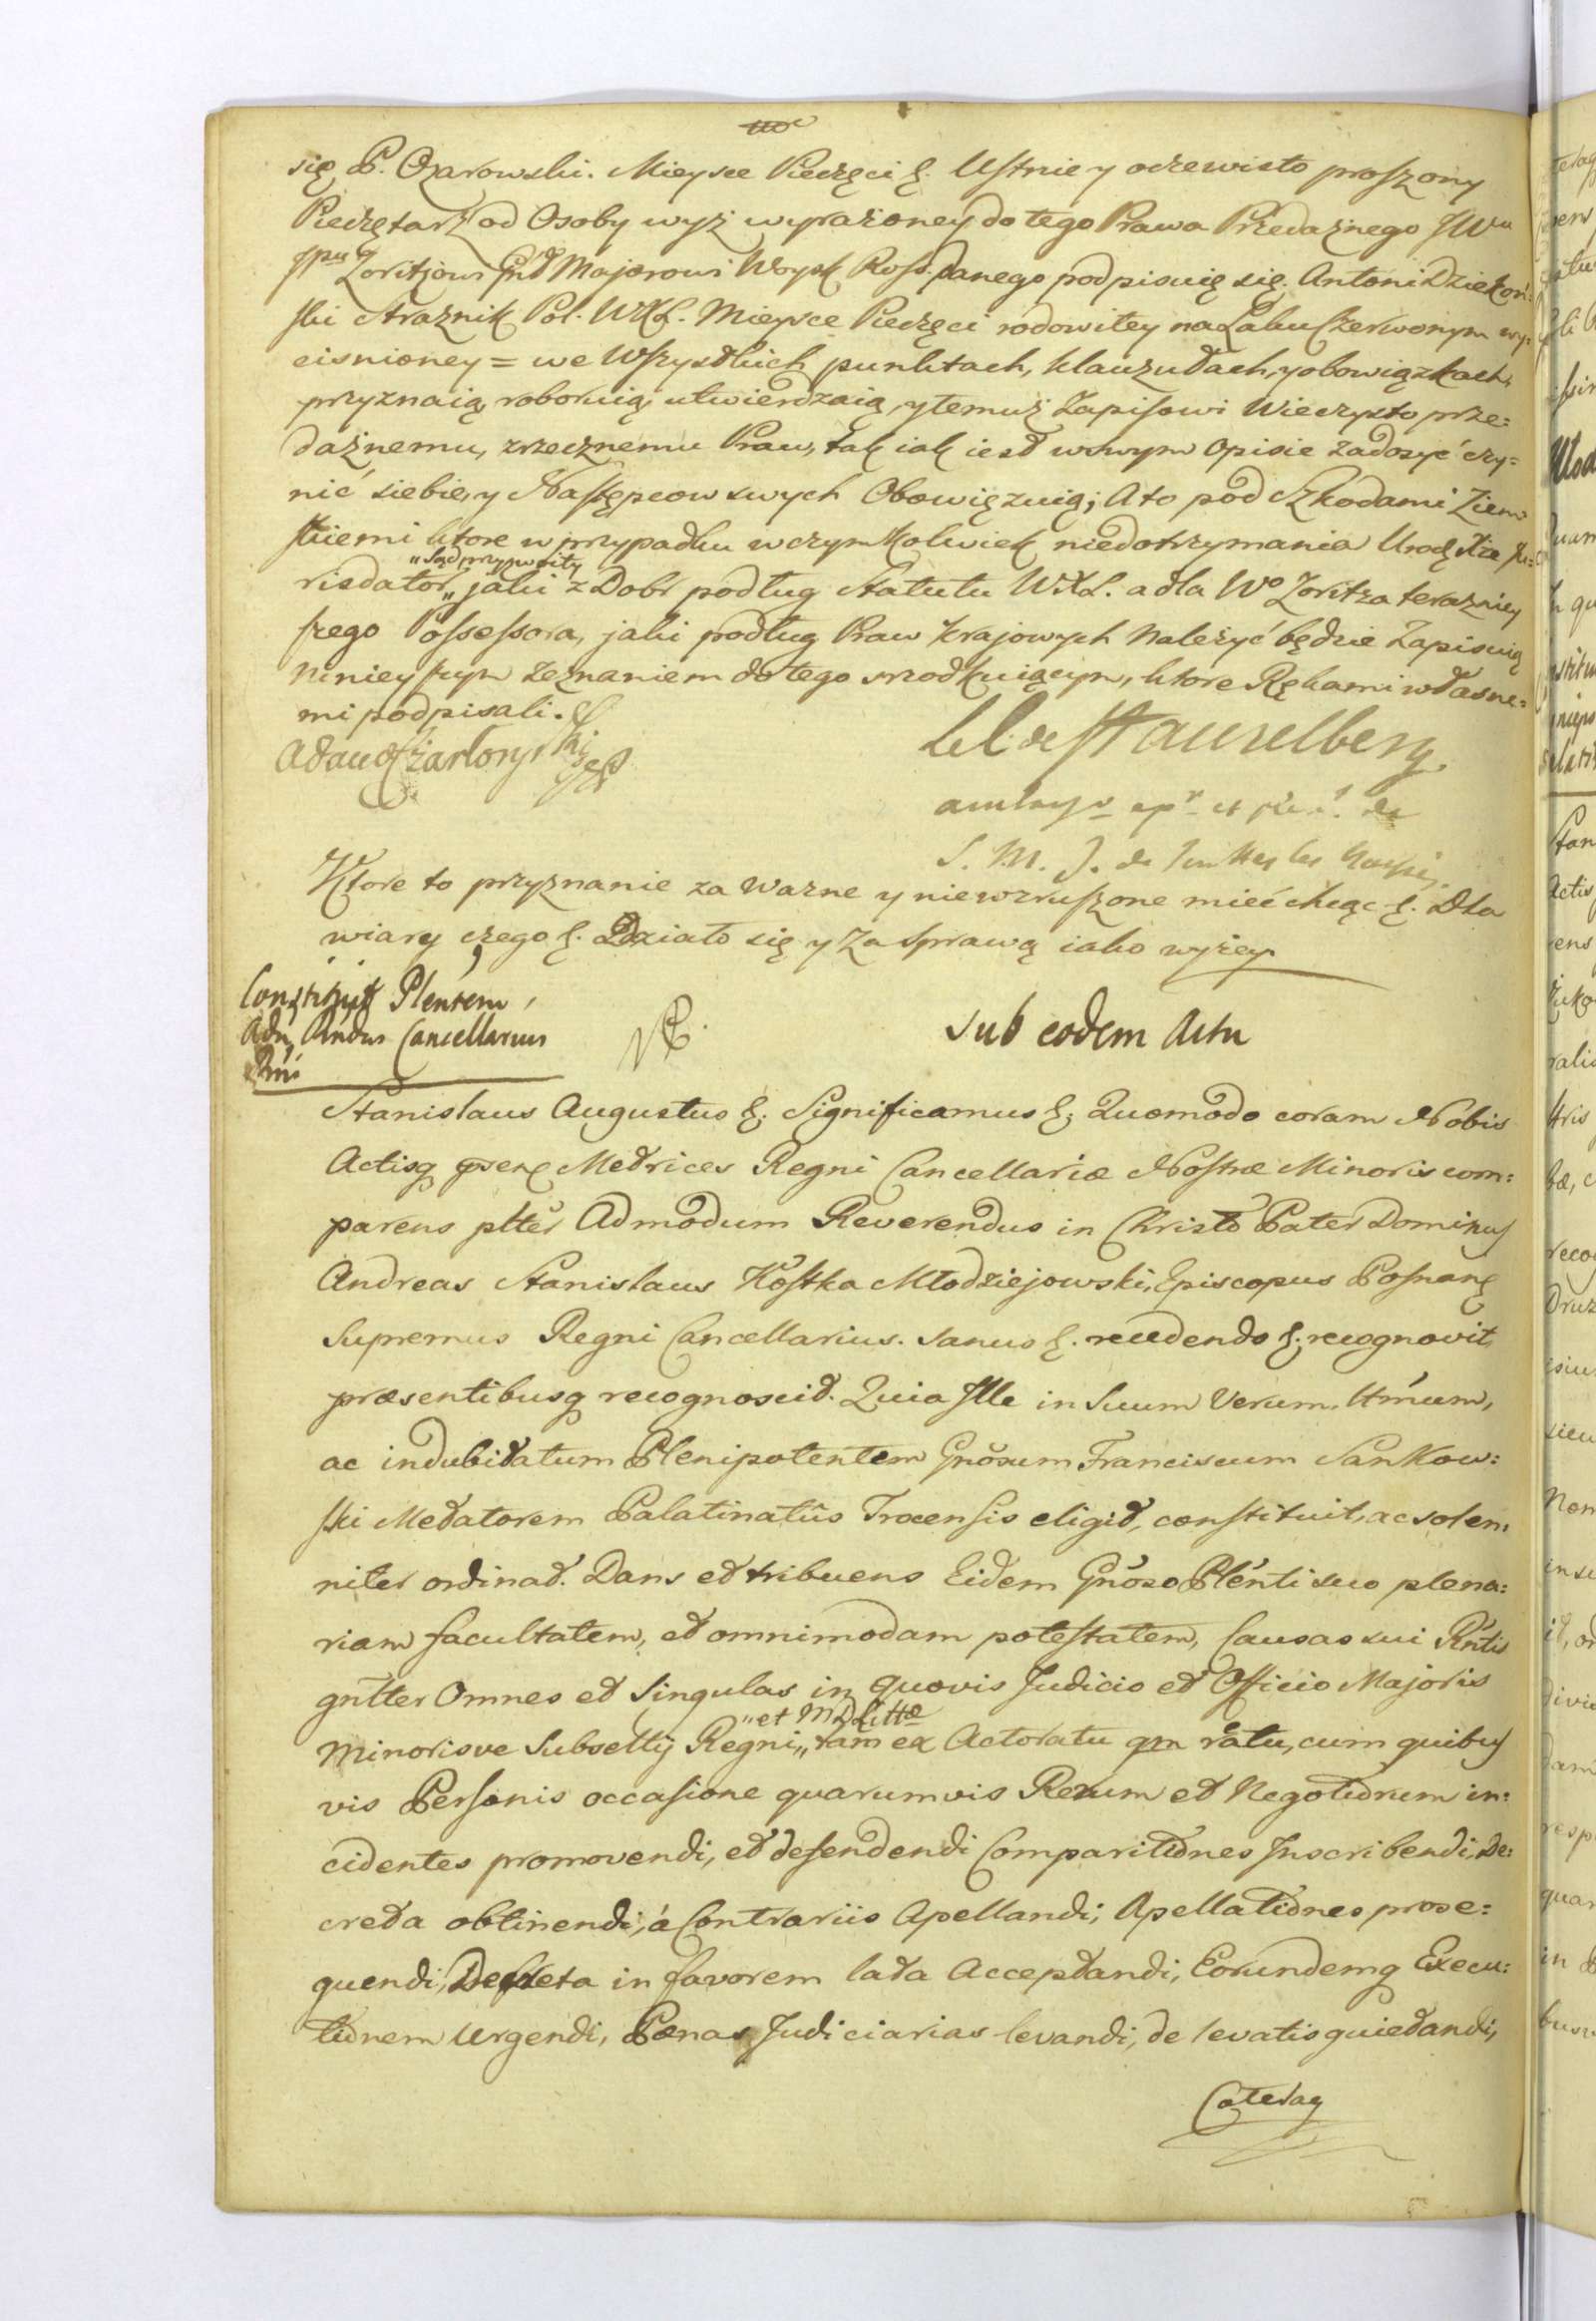 się P. Ożarowski. Mieysce Pieczęci &. Ustnie y oczewisto proszony
Pieczętarz od Osoby wyż wyrażoney do tego Prawa Przedażnego JW
Jpu Zoritzowi Gnł Majorowi Woysk Ross. danego podpisuię się. Antoni Dziekoń:
ski Straznik Pol. WXL. Mieysce Pieczęci rodowitey na Laku Czerwonym wy:
cisnioney = we Wszystkich punktach, klauzułach, y obowiązkach,
przyznaią roboruią utwierdzaią, y temuż Zapisowi Wieczysto prze=
dażnemu, zrzecznemu Praw, tak iak iest w swym Opisie zadosyć czy=
nić siebie, y Następcow swych Obowięzuią; A to pod Szkodami Ziem
skiemi ktore w przypadku w czymkolwiek niedotrzymania Urodz. Xże Ju=
„Sąd przyzwoity
risdator„ jaki z Dobr podług Statutu WXL. a dla Wo Zoritza terazniey
szego Possessora, jaki podług Praw krajowych należyć będzie Zapisuią
ninieyszym zeznaniem do tego srzodkuiącym, ktore Rękami własne=
mi podpisali. &
Adam X Czartoryski
C. de Stackelberg
ambasr et de
S. M. J. de toutes les Russies.
Ktore to przyznanie za wazne y niewzruszone mieć chcąc &. Dla
wiary czego &. Działo się y Za Sprawą iako wyżey
Constituit Plentem,
Adm Rndus Cancellarius
Rni
Sub eodem Actu
Stanislaus Augustus &. Significamus &; Quomodo coram Nobis
Actisq psent Metrices Regni Cancellariæ Nostræ Minoris com:
parens plter Admodum Reverendus in Christo Pater Dominus
Andreas Stanislaus Kostka Młodziejowski, Episcopus Posnan
Supremus Regni Cancellarius. Sanus &. recedendo &; recognovit,
præsentibusq recognoscit. Quia Ille in Suum Verum, Ltmum,
ac indubitatum Plenipotentem Gnosum Franciscum Sankow:
ski Metatorem Palatinatûs Trocensis eligit, constituit, ac solen:
niter ordinat. Dans et tribuens Eidem Gnoso Plénti suo plena:
riam facultatem, et omnimodam potestatem, Causas sui Pntis
gnlter Omnes et Singulas in quovis Judicio et Officio Majoris
„et M D Littæ
Minorisve Subsellij Regni„ tam ex Actoratu qm ratu, cum quibus
vis Personis occasione quarumvis Rerum et Negotiorum in:
cidentes promovendi, et defendendi Comparitiones Inscribendi, De:
creta obtinendi, á Contrariis Apellandi; Apellationes prose:
quendi, Decreta in favorem lata Acceptandi, Eorundemq Execu:
tionem Urgendi, Pœnas Judiciarias levandi, de levatis quietandi,
Cæteraq